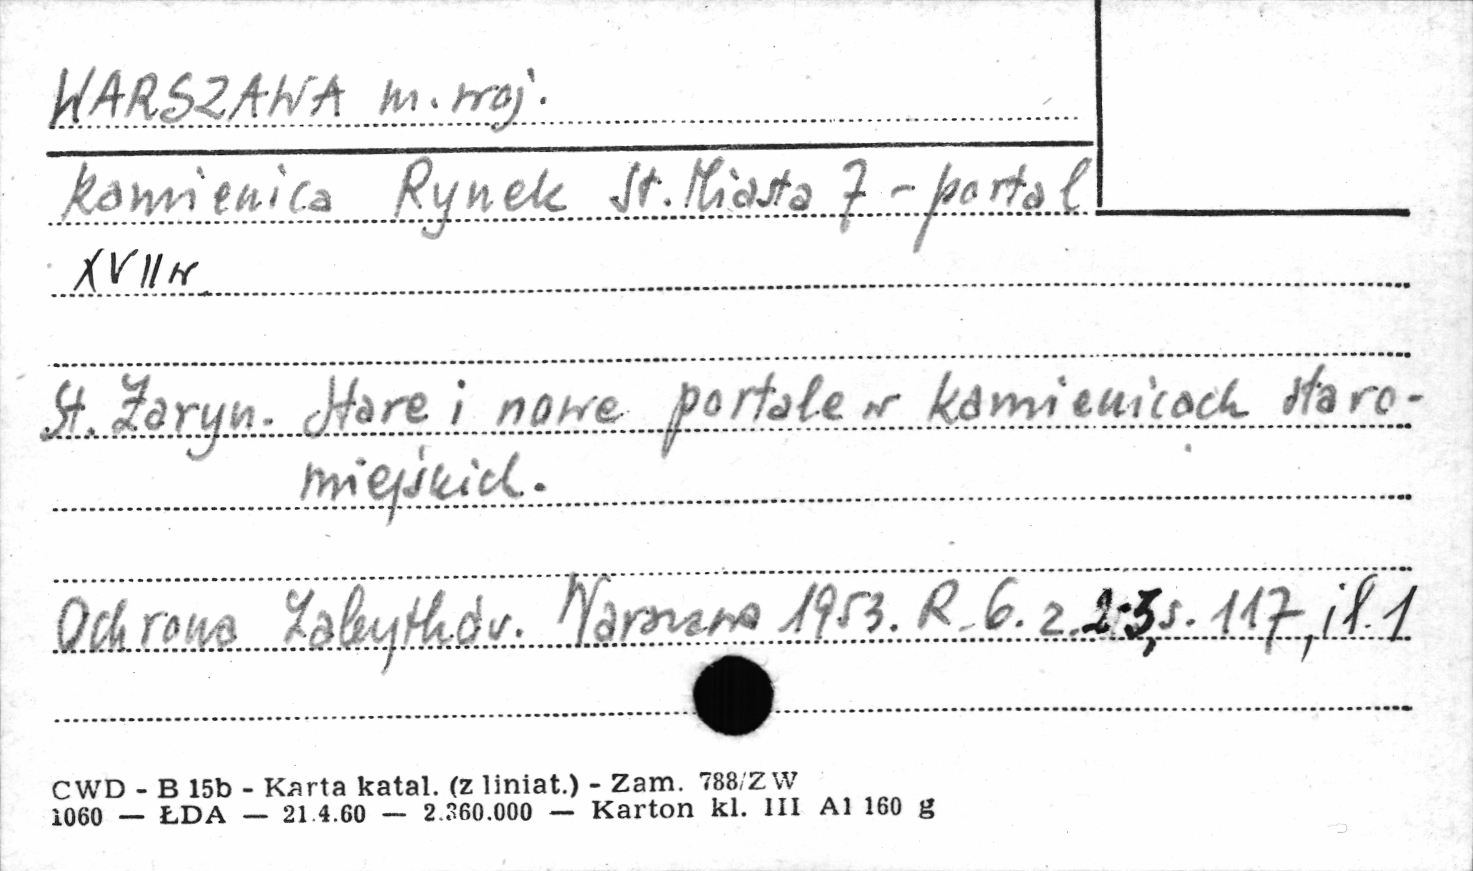 WARSZAWA m. woj.
kamienica Rynek St. Miasta 7 - portal
XVII w.
St. Żaryn. Stare i nowe portale w kamienicach staro-
miejskich.
Ochrona Zabytków. Warszawa 1953. R. 6. z. 2-3, s. 117, il. 1
CWD - B 15b - Karta katal. (z liniat.) - Zam. 788/ZW
1060 — ŁDA — 21.4.60 — 2.360.000 — Karton kl. III A1 160 g